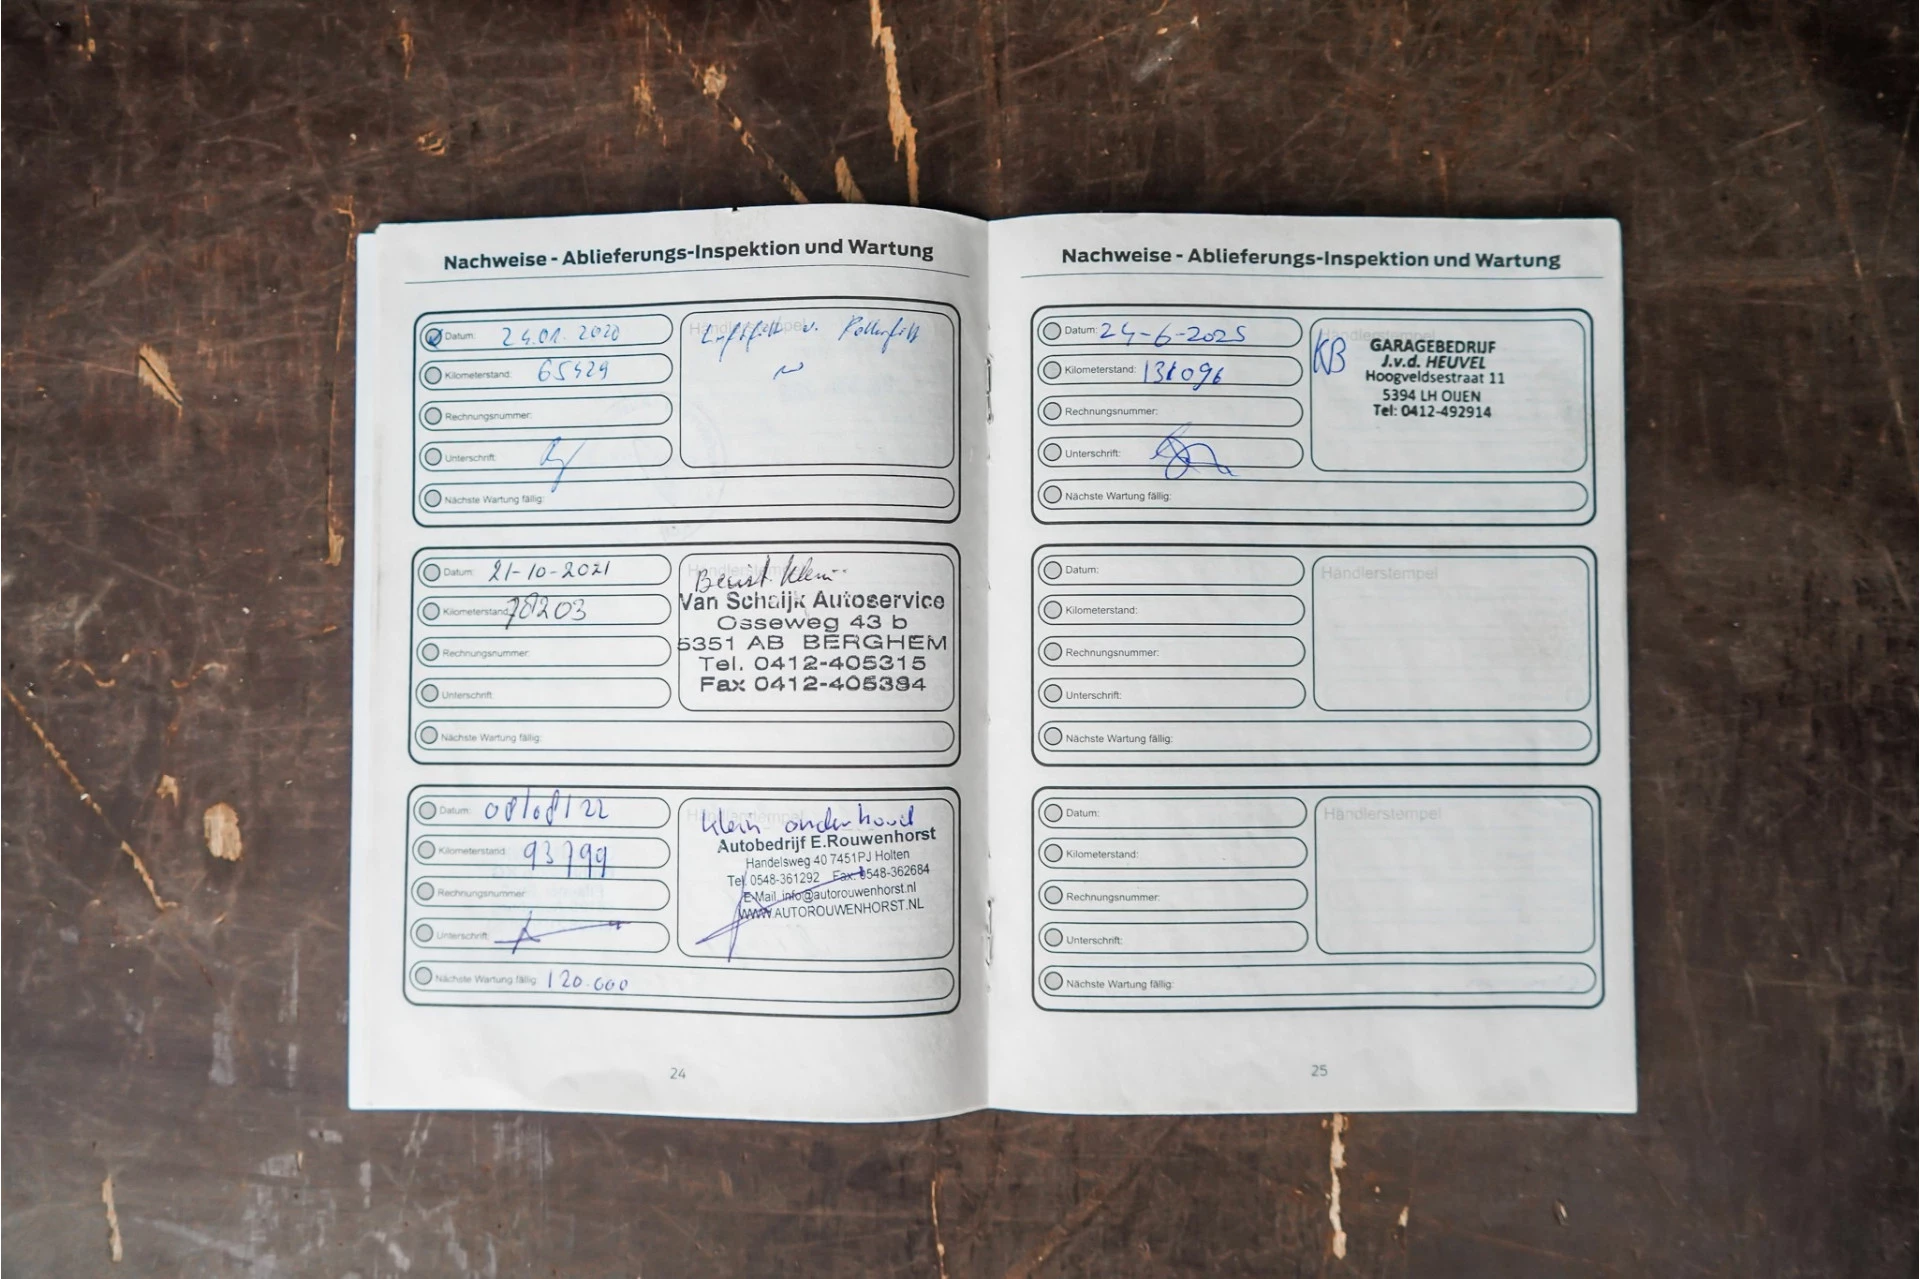 Nachweise - Ablieferungs-Inspektion und Wartung
Datum: 24.01.2020
Kilometerstand: 65429
Rechnungsnummer:
Unterschrift:
Nächste Wartung fällig:
Händlerstempel
Luftfilt u. Pollenfilt
Datum: 21-10-2021
Kilometerstand: 78203
Rechnungsnummer:
Unterschrift:
Nächste Wartung fällig:
Händlerstempel
Beurt Klein
Van Schaijk Autoservice
Osseweg 43 b
5351 AB BERGHEM
Tel. 0412-405315
Fax 0412-405394
Datum: 08/08/22
Kilometerstand: 93799
Rechnungsnummer:
Unterschrift:
Nächste Wartung fällig: 120.000
Händlerstempel
klein onderhoud
Autobedrijf E.Rouwenhorst
Handelsweg 40 7451PJ Holten
Tel. 0548-361292 Fax: 0548-362684
E-Mail info@autorouwenhorst.nl
WWW.AUTOROUWENHORST.NL
24
Nachweise - Ablieferungs-Inspektion und Wartung
Datum: 24-6-2025
Kilometerstand: 131096
Rechnungsnummer:
Unterschrift:
Nächste Wartung fällig:
Händlerstempel
KB
GARAGEBEDRIJF
J.v.d. HEUVEL
Hoogveldsestraat 11
5394 LH OIJEN
Tel: 0412-492914
Datum:
Kilometerstand:
Rechnungsnummer:
Unterschrift:
Nächste Wartung fällig:
Händlerstempel
Datum:
Kilometerstand:
Rechnungsnummer:
Unterschrift:
Nächste Wartung fällig:
Händlerstempel
25